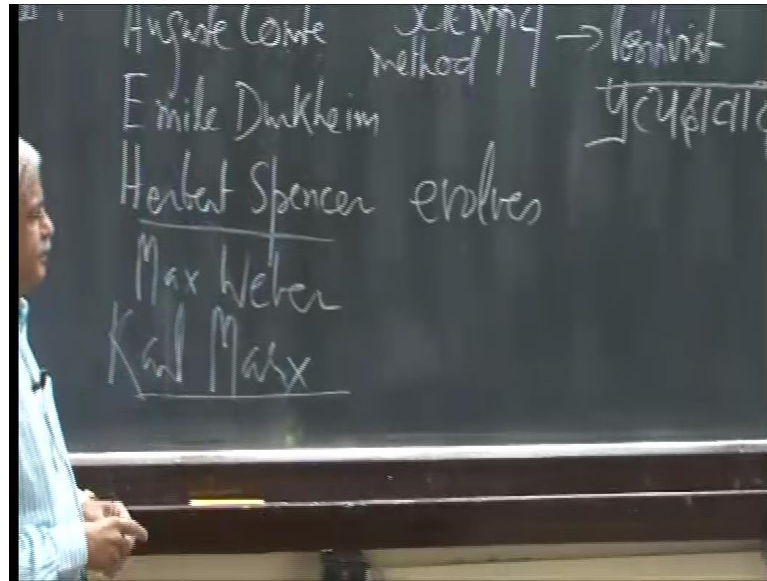 Auguste Comte → Positivist
method
प्रत्यक्षवाद
Emile Durkheim
Herbert Spencer evolves
Max Weber
Karl Marx